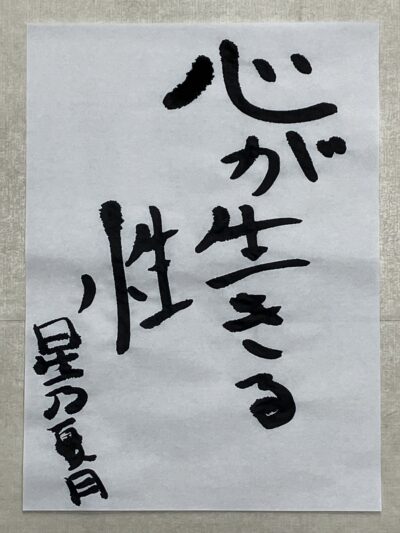 心が生きる
性
星乃夏月